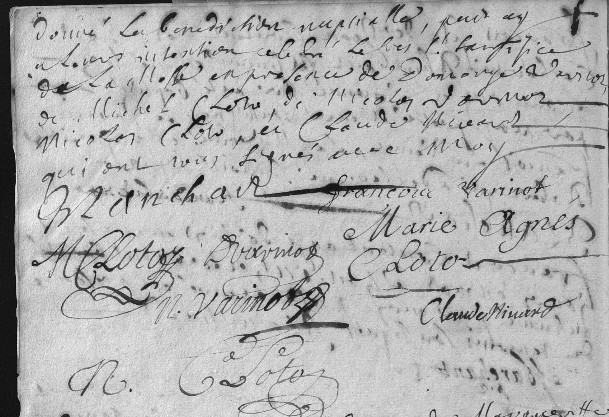 donné La benediction nuptialle, puis ay
a Leurs intention celebré Le St Sacrifice
de La Messe en presence de Varinot
de Michel Cloto, de Nicolas Varinot
Nicolas Cloto, et Claude Nivard
qui ont tous signés avec Moy
francois Varinot
Marie Agnés
M Clotoy D varinot Cloto
N. Varinot Claude Nivard
N. Cloto